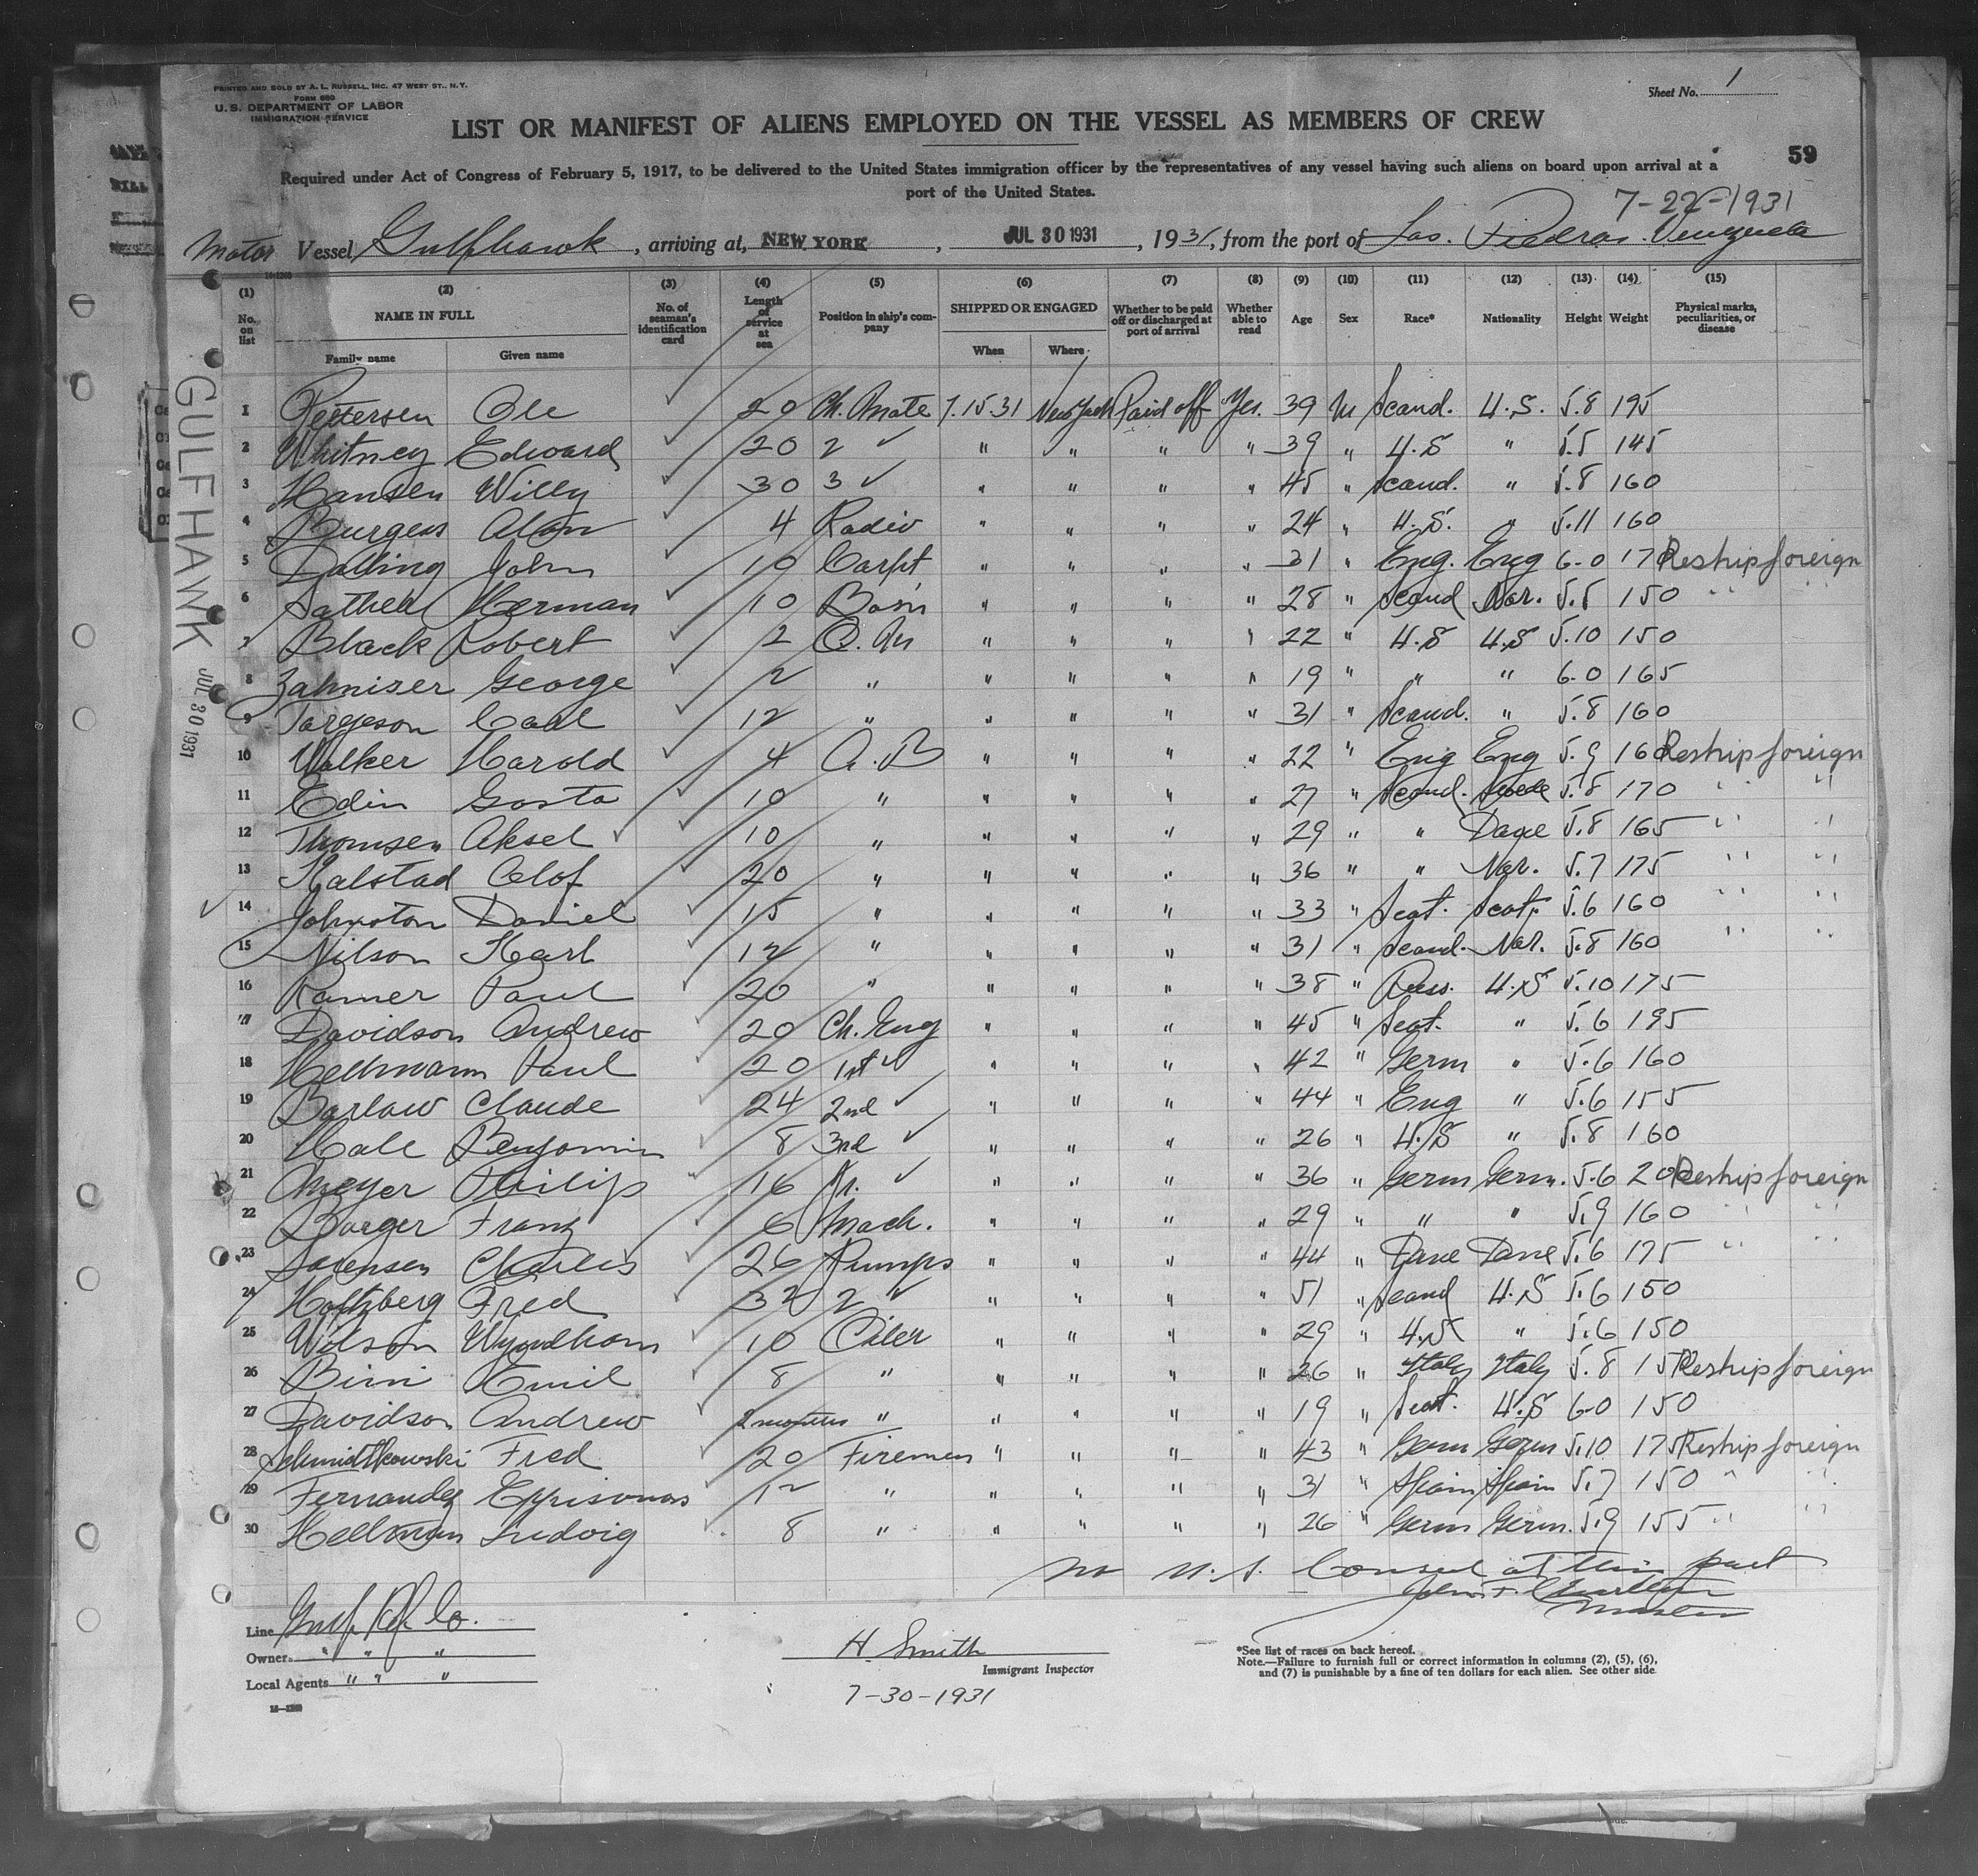 PRINTED AND SOLD BY A. L. RUSSELL, INC. 47 WEST ST., N.Y.
FORM 680
U. S. DEPARTMENT OF LABOR
IMMIGRATION SERVICE
Sheet No. 1
LIST OR MANIFEST OF ALIENS EMPLOYED ON THE VESSEL AS MEMBERS OF CREW
59
Required under Act of Congress of February 5, 1917, to be delivered to the United States immigration officer by the representatives of any vessel having such aliens on board upon arrival at a
port of the United States.
7-22-1931
Motor Vessel Gulfhawk, arriving at, NEW YORK, JUL 30 1931, 1931, from the port of Las. Piedras. Venezuela
(1) (2) (3) (4) (5) (6) (7) (8) (9) (10) (11) (12) (13) (14) (15)
No. on list NAME IN FULL Family name Given name No. of seaman's identification card Length of service at sea Position in ship's company SHIPPED OR ENGAGED When Where Whether to be paid off or discharged at port of arrival Whether able to read Age Sex Race* Nationality Height Weight Physical marks, peculiarities, or disease
GULFHAWK JUL 30 1931
1 Pettersen Ole 20 Ch. Mate 7.15.31 New York Paid off Yes. 39 M Scand. U.S. 5.8 195
2 Whitney Edward 20 2 ✓ " " " " 39 " U.S " 5.5 145
3 Hansen Willy 30 3 ✓ " " " " 45 " Scand. " 5.8 160
4 Burgess Alan 4 Radio " " " " 24 " U.S. " 5.11 160
5 Dalling John 10 Carpt. " " " " 31 " Eng. Eng 6-0 170 Reship foreign
6 Herman 10 Bos'n " " " " 28 " Scand Nor. 5.5 150 " "
7 Black Robert 2 Q.M " " " " 22 " U.S U.S 5.10 150
8 Zahniser George 2 " " " " " 19 " " " 6-0 165
9 Torgeson Carl 12 " " " " " 31 " Scand. " 5.8 160
10 Walker Harold 4 A.B " " " " 22 " Eng Eng 5.9 160 Reship foreign
11 Edin Gosta 10 " " " " " 27 " Scand. Swede 5.8 170 " "
12 Thomsen Aksel 10 " " " " " 29 " " Dane 5.8 165 " "
13 Kalstad Olof 20 " " " " " 36 " " Nor. 5.7 175 " "
14 Johnston Daniel 15 " " " " " 33 " Scot. Scot. 5.6 160 " "
15 Nilson Karl 12 " " " " " 31 " Scand. Nor. 5.8 160 " "
16 Ramer Paul 20 " " " " " 38 " Russ. U.S 5.10 175
17 Davidson Andrew 20 Ch. Eng " " " " 45 " Scot. " 5.6 195
18 Hellmann Paul 20 1st ✓ " " " " 42 " Germ " 5.6 160
19 Barlow Claude 24 2nd ✓ " " " " 44 " Eng " 5.6 155
20 Hall Benjamin 8 3rd ✓ " " " " 26 " U.S " 5.8 160
21 Meyer Philip 16 Jr. ✓ " " " " 36 " Germ Germ. 5.6 200 Reship foreign
22 Franz 6 Mach. " " " " 29 " " " 5.9 160 " "
23 Sorensen Charles 26 Pumps " " " " 44 " Dane Dane 5.6 175 " "
24 Holtzberg Fred 32 2 ✓ " " " " 51 " Scand U.S 5.6 150
25 Wilson Wyndham 10 Oiler " " " " 29 " U.S " 5.6 150
26 Bini Emil 8 " " " " " 26 " Italy Italy 5.8 150 Reship foreign
27 Davidson Andrew 2 months " " " " " 19 " Scot. U.S 6-0 150
28 Schmidtkowski Fred 20 Firemen " " " " 43 " Germ Germ 5.10 175 Reship foreign
29 Fernandez 12 " " " " " 31 " Spain Spain 5.7 150 " "
30 Hellman Ludwig 8 " " " " " 26 " Germ Germ. 5.9 155 " "
No U.S. Consul at this port
Master
Line Gulf Rf. Co.
Owner " " "
Local Agents " " "
H Smith
Immigrant Inspector
7-30-1931
*See list of races on back hereof.
Note.—Failure to furnish full or correct information in columns (2), (5), (6),
and (7) is punishable by a fine of ten dollars for each alien. See other side.